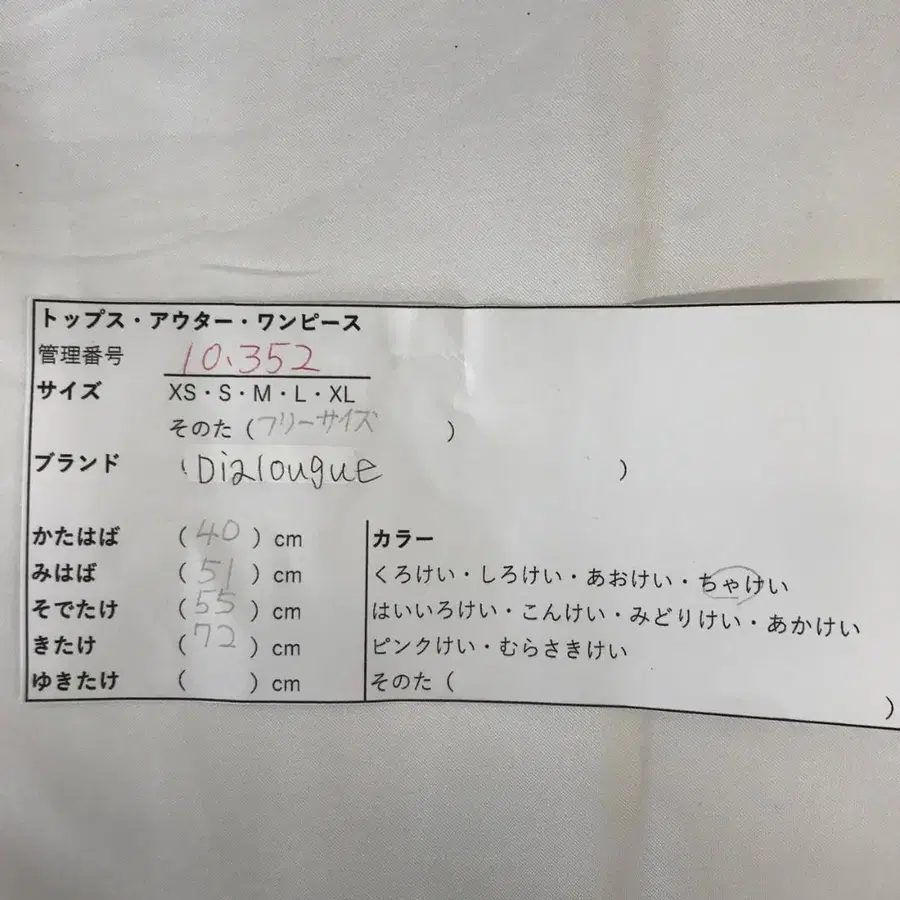 トップス・アウター・ワンピース
管理番号 10.352
サイズ XS・S・M・L・XL
そのた（フリーサイズ ）
ブランド Dialougue ）
かたはば （40）cm
みはば （51）cm
そでたけ （55）cm
きたけ （72）cm
ゆきたけ （ ）cm
カラー
くろけい・しろけい・あおけい・ちゃけい
はいいろけい・こんけい・みどりけい・あかけい
ピンクけい・むらさきけい
そのた（ ）